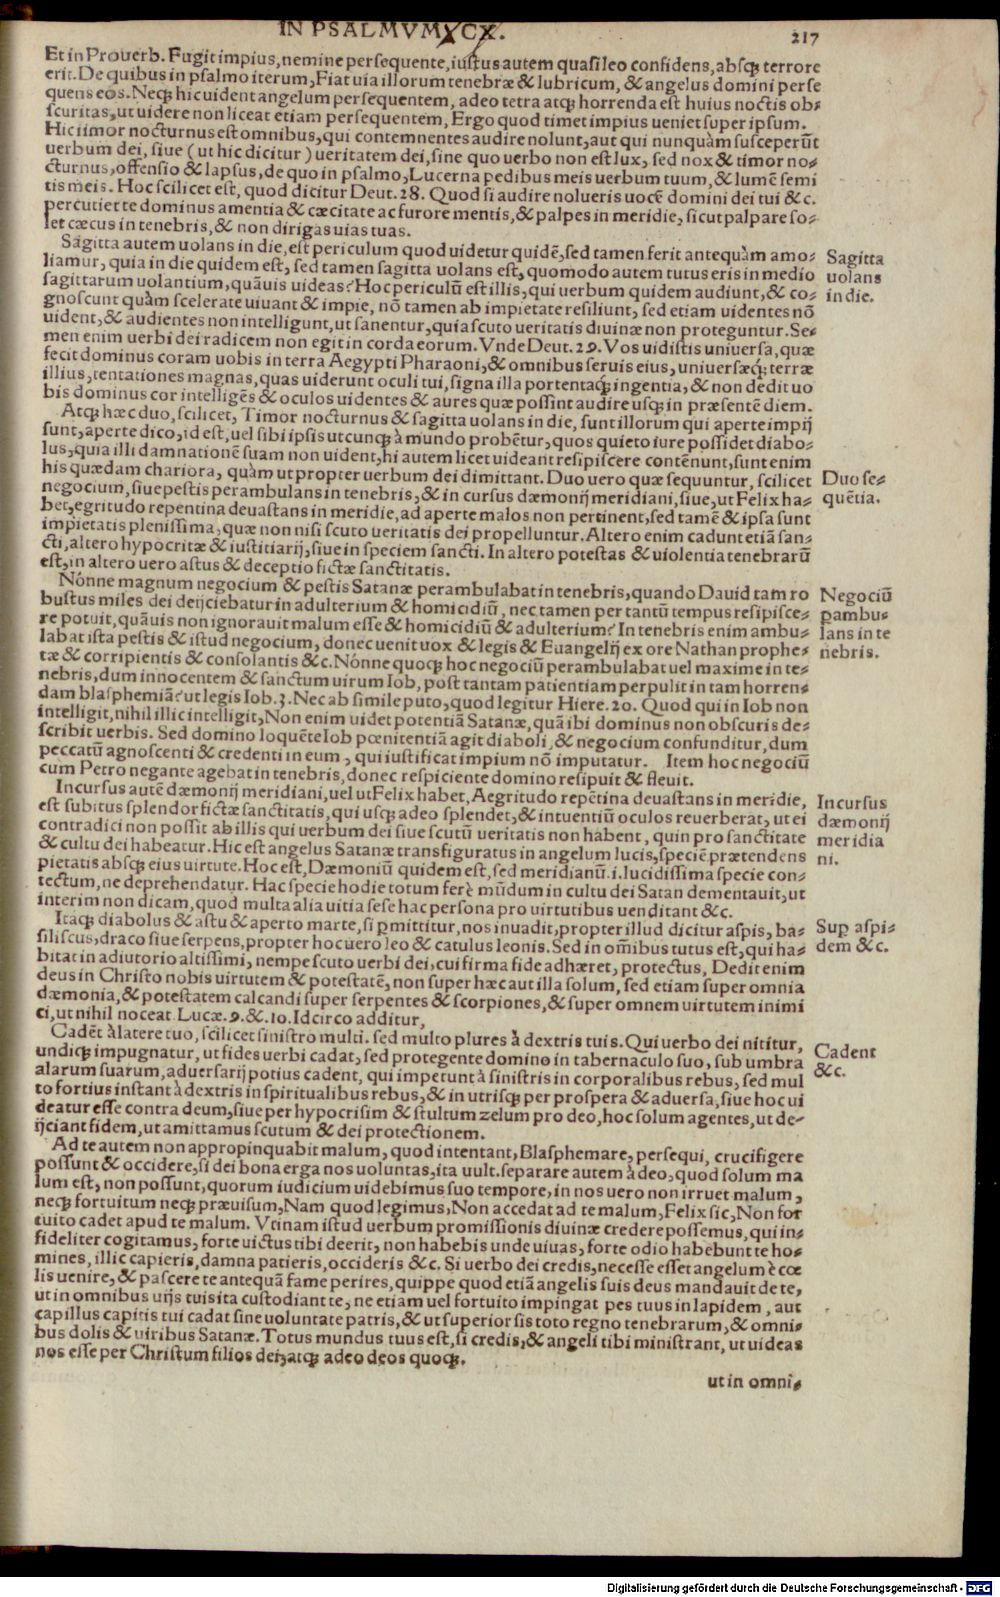 IN PSALMVM XCX.
217
Et in Prouerb. Fugit impius, nemine persequente, iustus autem quasi leo confidens, absq; terrore
erit. De quibus in psalmo iterum, Fiat uia illorum tenebræ & lubricum, & angelus domini perse
quens eos. Neq; hic uident angelum persequentem, adeo tetra atq; horrenda est huius noctis ob-
scuritas, ut uidere non liceat etiam persequentem, Ergo quod timet impius ueniet super ipsum.
Hic timor nocturnus est omnibus, qui contemnentes audire nolunt, aut qui nunquàm susceperūt
uerbum dei, siue (ut hic dicitur) ueritatem dei, sine quo uerbo non est lux, sed nox & timor no-
cturnus, offensio & lapsus, de quo in psalmo, Lucerna pedibus meis uerbum tuum, & lumē semi
tis meis. Hoc scilicet est, quod dicitur Deut. 28. Quod si audire nolueris uocē domini dei tui &c.
percutiet te dominus amentia & cæcitate ac furore mentis, & palpes in meridie, sicut palpare so-
let cæcus in tenebris, & non dirigas uias tuas.
Sagitta autem uolans in die, est periculum quod uidetur quidē, sed tamen ferit antequàm amo-
liamur, quia in die quidem est, sed tamen sagitta uolans est, quomodo autem tutus eris in medio
sagittarum uolantium, quāuis uideas? Hoc periculū est illis, qui uerbum quidem audiunt, & co-
gnoscunt quàm scelerate uiuant & impie, nō tamen ab impietate resiliunt, sed etiam uidentes nō
uident, & audientes non intelligunt, ut sanentur, quia scuto ueritatis diuinæ non proteguntur. Se-
men enim uerbi dei radicem non egit in corda eorum. Vnde Deut. 29. Vos uidistis uniuersa, quæ
fecit dominus coram uobis in terra Aegypti Pharaoni, & omnibus seruis eius, uniuersæq; terræ
illius, tentationes magnas, quas uiderunt oculi tui, signa illa portentaq; ingentia, & non dedit uo
bis dominus cor intelligēs & oculos uidentes & aures quæ possint audire usq; in præsentē diem.
Atq; hæc duo, scilicet, Timor nocturnus & sagitta uolans in die, sunt illorum qui aperte impij
sunt, aperte dico, id est, uel sibi ipsis utcunq; à mundo probētur, quos quieto iure possidet diabo-
lus, quia illi damnationē suam non uident, hi autem licet uideant resipiscere contēnunt, sunt enim
his quædam chariora, quàm ut propter uerbum dei dimittant. Duo uero quæ sequuntur, scilicet
negocium, siue pestis perambulans in tenebris, & in cursus dæmonij meridiani, siue, ut Felix ha-
bet, egritudo repentina deuastans in meridie, ad aperte malos non pertinent, sed tamē & ipsa sunt
impietatis plenissima, quæ non nisi scuto ueritatis dei propelluntur. Altero enim cadunt etiā san-
cti, altero hypocritæ & iustitiarij, siue in speciem sancti. In altero potestas & uiolentia tenebrarū
est, in altero uero astus & deceptio fictæ sanctitatis.
Nónne magnum negocium & pestis Satanæ perambulabat in tenebris, quando Dauid tam ro
bustus miles dei deijciebatur in adulterium & homicidiū, nec tamen per tantū tempus resipisce-
re potuit, quāuis non ignorauit malum esse & homicidiū & adulterium? In tenebris enim ambu-
labat ista pestis & istud negocium, donec uenit uox & legis & Euangelij ex ore Nathan prophe-
tæ & corripientis & consolantis &c. Nónne quoq; hoc negociū perambulabat uel maxime in te-
nebris, dum innocentem & sanctum uirum Iob, post tantam patientiam perpulit in tam horren-
dam blasphemiā? ut legis Iob. 3. Nec ab simile puto, quod legitur Hiere. 20. Quod qui in Iob non
intelligit, nihil illic intelligit, Non enim uidet potentiā Satanæ, quā ibi dominus non obscuris de-
scribit uerbis. Sed domino loquēte Iob pœnitentiā agit diaboli, & negocium confunditur, dum
peccatū agnoscenti & credenti in eum, qui iustificat impium nō imputatur. Item hoc negociū
cum Petro negante agebat in tenebris, donec respiciente domino resipuit & fleuit.
Incursus autē dæmonij meridiani, uel ut Felix habet, Aegritudo repētina deuastans in meridie,
est subitus splendor fictæ sanctitatis, qui usq; adeo splendet, & intuentiū oculos reuerberat, ut ei
contradici non possit ab illis qui uerbum dei siue scutū ueritatis non habent, quin pro sanctitate
& cultu dei habeatur. Hic est angelus Satanæ transfiguratus in angelum lucis, speciē prætendens
pietatis absq; eius uirtute. Hoc est, Dæmoniū quidem est, sed meridianū .i. lucidissima specie con-
tectum, ne deprehendatur. Hac specie hodie totum ferè mūdum in cultu dei Satan dementauit, ut
interim non dicam, quod multa alia uitia sese hac persona pro uirtutibus uenditant &c.
Itaq; diabolus & astu & aperto marte, si pmittitur, nos inuadit, propter illud dicitur aspis, ba-
siliscus, draco siue serpens, propter hoc uero leo & catulus leonis. Sed in om̄ibus tutus est, qui ha-
bitat in adiutorio altissimi, nempe scuto uerbi dei, cui firma fide adhæret, protectus, Dedit enim
deus in Christo nobis uirtutem & potestatē, non super hæc aut illa solum, sed etiam super omnia
dæmonia, & potestatem calcandi super serpentes & scorpiones, & super omnem uirtutem inimi
ci, ut nihil noceat Lucæ. 9. &. 10. Idcirco additur,
Cadēt à latere tuo, scilicet sinistro multi. sed multo plures à dextris tuis. Qui uerbo dei nititur,
undiq; impugnatur, ut fides uerbi cadat, sed protegente domino in tabernaculo suo, sub umbra
alarum suarum, aduersarij potius cadent, qui impetunt à sinistris in corporalibus rebus, sed mul
to fortius instant à dextris in spiritualibus rebus, & in utrisq; per prospera & aduersa, siue hoc ui
deatur esse contra deum, siue per hypocrisim & stultum zelum pro deo, hoc solum agentes, ut de-
ijciant fidem, ut amittamus scutum & dei protectionem.
Ad te autem non appropinquabit malum, quod intentant, Blasphemare, persequi, crucifigere
possunt & occidere, si dei bona erga nos uoluntas, ita uult. separare autem à deo, quod solum ma
lum est, non possunt, quorum iudicium uidebimus suo tempore, in nos uero non irruet malum,
neq; fortuitum neq; præuisum, Nam quod legimus, Non accedat ad te malum, Felix sic, Non for
tuito cadet apud te malum. Vtinam istud uerbum promissionis diuinæ credere possemus, qui in-
fideliter cogitamus, forte uictus tibi deerit, non habebis unde uiuas, forte odio habebunt te ho-
mines, illic capieris, damna patieris, occideris &c. Si uerbo dei credis, necesse esset angelum è cœ
lis uenire, & pascere te antequā fame perires, quippe quod etiā angelis suis deus mandauit de te,
ut in omnibus uijs tuis ita custodiant te, ne etiam uel fortuito impingat pes tuus in lapidem, aut
capillus capitis tui cadat sine uoluntate patris, & ut superior sis toto regno tenebrarum, & omni-
bus dolis & uiribus Satanæ. Totus mundus tuus est, si credis, & angeli tibi ministrant, ut uideas
nos esse per Christum filios dei, atq; adeo deos quoq;.
ut in omni-
Sagitta
uolans
in die.
Duo se-
quētia.
Negociū
pambu-
lans in te
nebris.
Incursus
dæmonij
meridia
ni.
Sup aspi-
dem &c.
Cadent
&c.
Digitalisierung gefördert durch die Deutsche Forschungsgemeinschaft - DFG